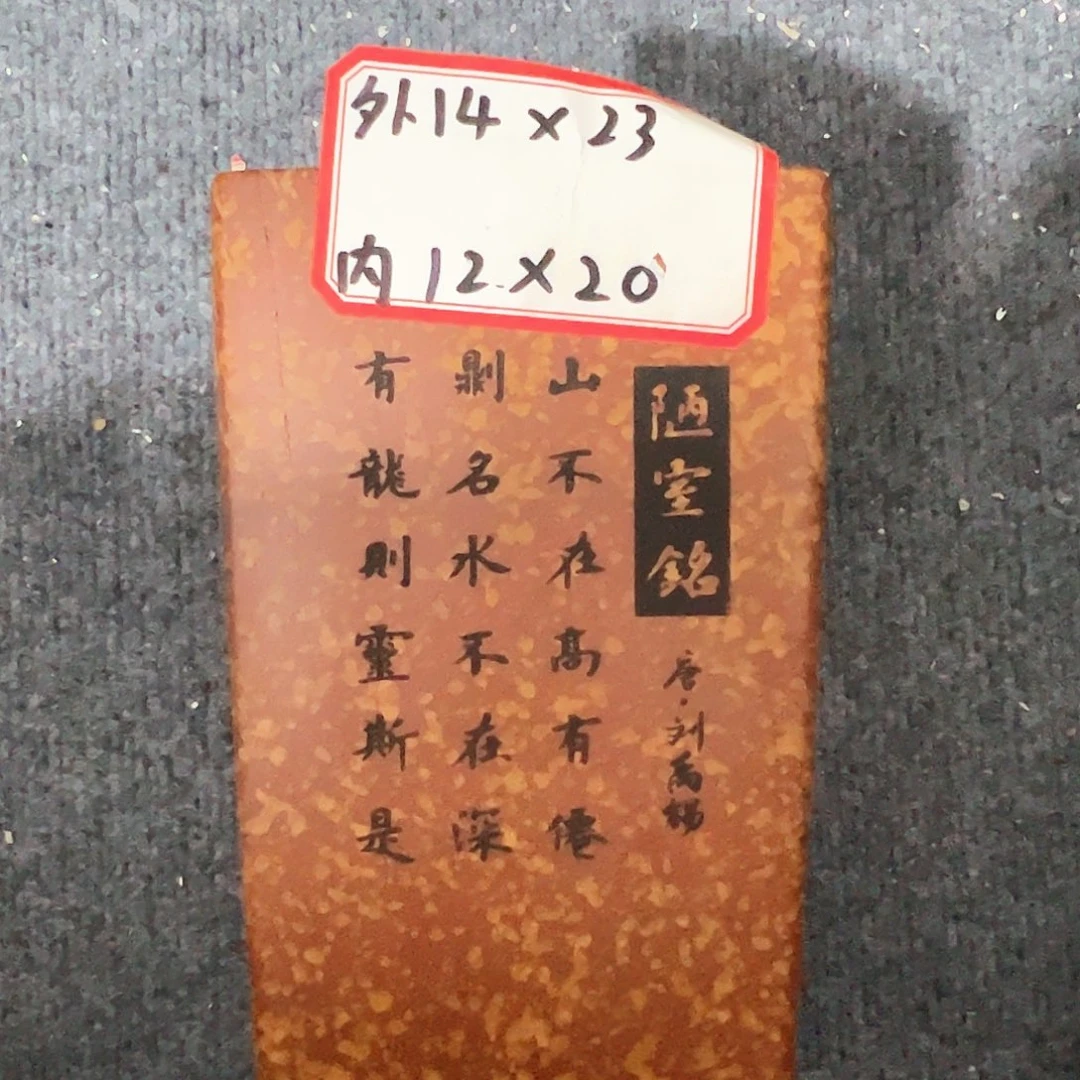 外14×23
内12×20
陋室銘
唐·刘禹锡
山不在高有僊
則名水不在深
有龍則靈斯是